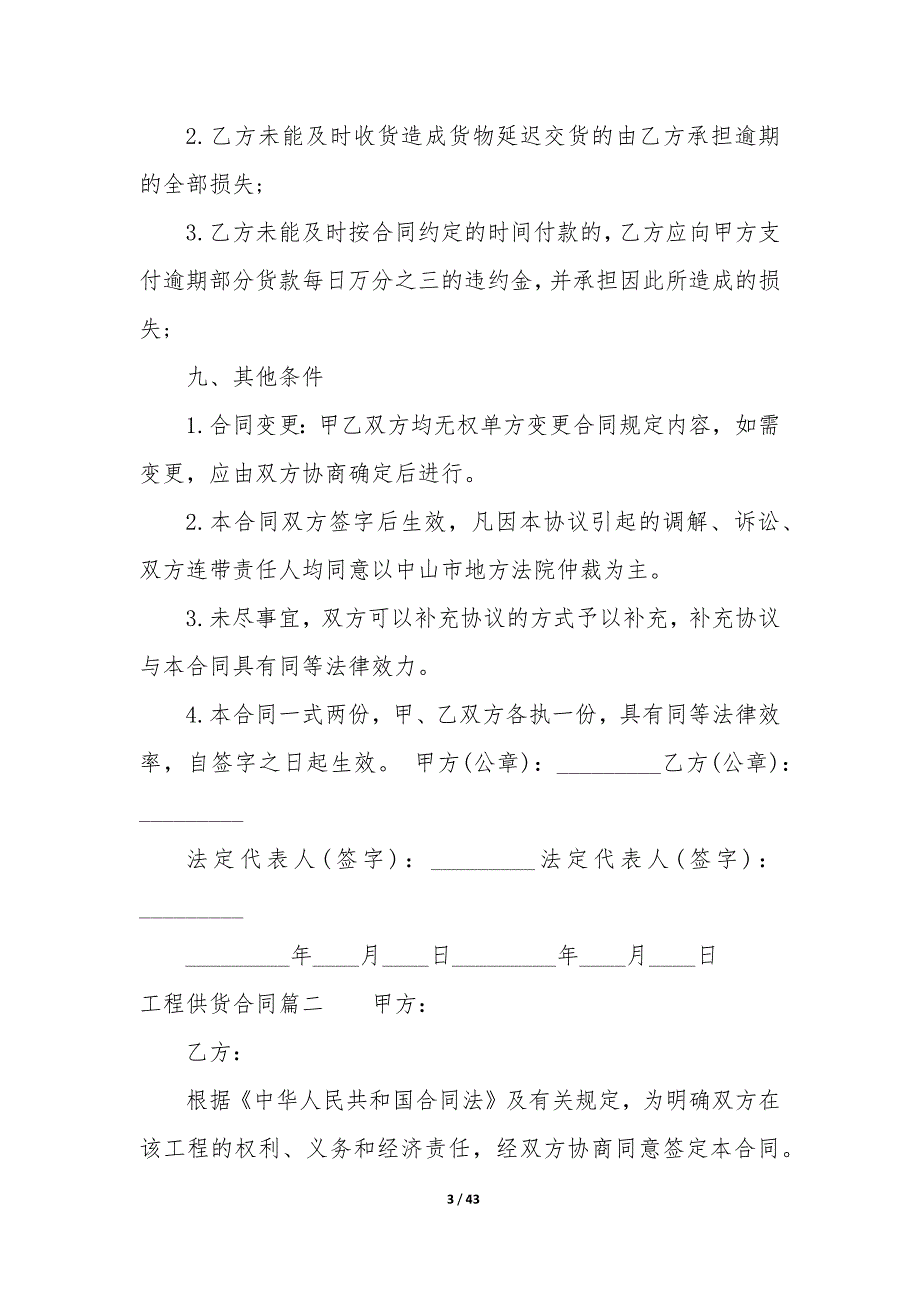 2.乙方未能及时收货造成货物延迟交货的由乙方承担逾期
的全部损失;
3.乙方未能及时按合同约定的时间付款的，乙方应向甲方支
付逾期部分货款每日万分之三的违约金，并承担因此所造成的损
失;
九、其他条件
1.合同变更：甲乙双方均无权单方变更合同规定内容，如需
变更，应由双方协商确定后进行。
2.本合同双方签字后生效，凡因本协议引起的调解、诉讼、
双方连带责任人均同意以中山市地方法院仲裁为主。
3.未尽事宜，双方可以补充协议的方式予以补充，补充协议
与本合同具有同等法律效力。
4.本合同一式两份，甲、乙双方各执一份，具有同等法律效
率，自签字之日起生效。 甲方(公章)：_________乙方(公章)：
_________
法定代表人(签字)：_________法定代表人(签字)：
_________
_________年____月____日_________年____月____日
工程供货合同篇二 甲方：
乙方：
根据《中华人民共和国合同法》及有关规定，为明确双方在
该工程的权利、义务和经济责任，经双方协商同意签定本合同。
3 / 43